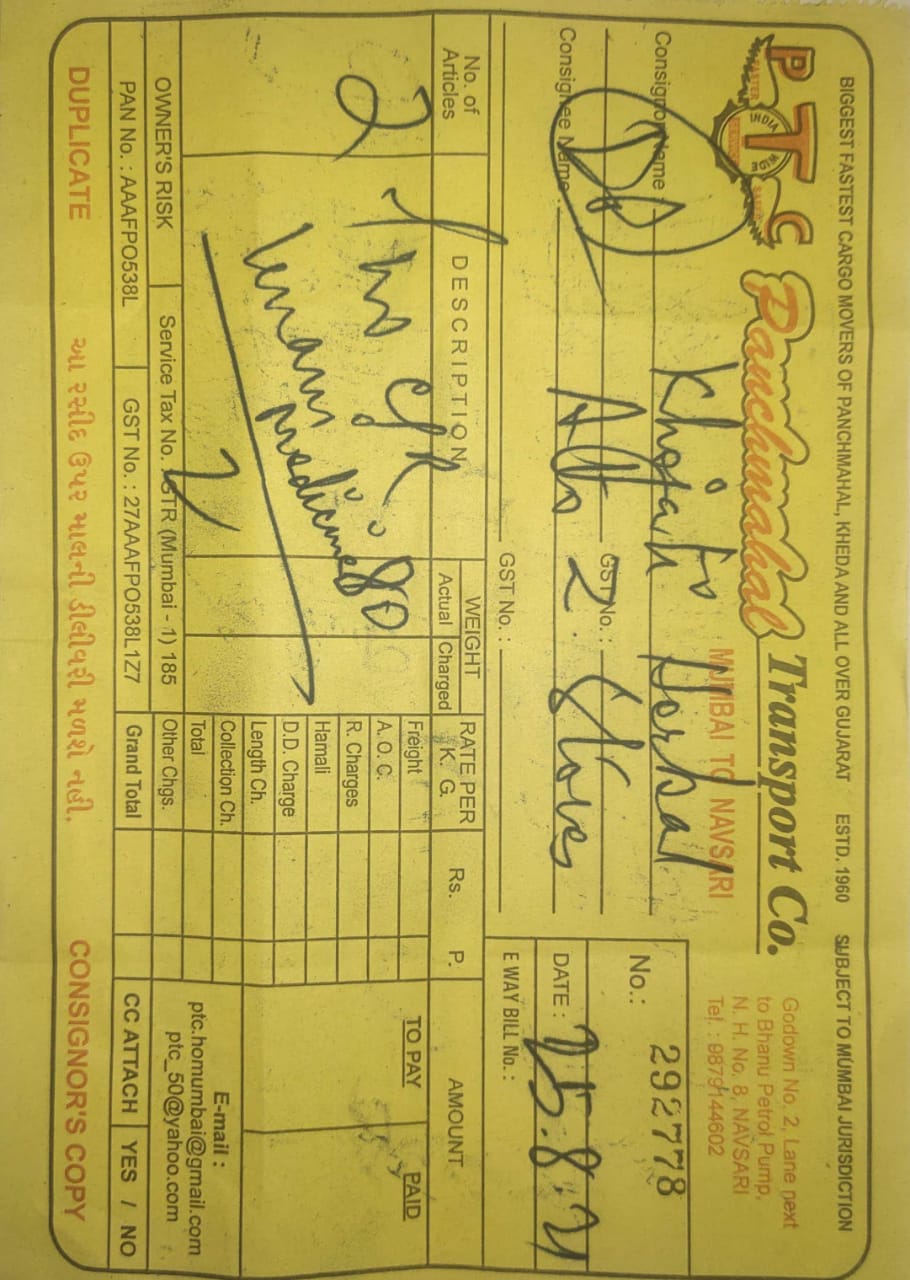 BIGGEST FASTEST CARGO MOVERS OF PANCHMAHAL, KHEDA AND ALL OVER GUJARAT ESTD. 1960 SUBJECT TO MUMBAI JURISDICTION
PTC
FASTER
INDIA WIDE
SERVICE
Panchmahal Transport Co.
MUMBAI TO NAVSARI
Godown No. 2, Lane next
to Bhanu Petrol Pump,
N. H. No. 8, NAVSARI
Tel. : 9879144602
Consignor Name : Khojati Herbal
GST No. :
Consignee Name : Alto 2. Stores
GST No. :
DD
No.: 292778
DATE : 25.8.21
E WAY BILL No. :
No. of Articles
DESCRIPTION
WEIGHT
Actual Charged
RATE PER K. G.
Rs. P.
AMOUNT
2
80
medicines
Freight
A. O. C.
R. Charges
Hamali
D.D. Charge
Length Ch.
Collection Ch.
Total
Other Chgs.
Grand Total
TO PAY
PAID
OWNER'S RISK
Service Tax No. GTR (Mumbai - 1) 185
PAN No. : AAAFPO538L
GST No. : 27AAAFPO538L1Z7
E-mail :
ptc.homumbai@gmail.com
ptc_50@yahoo.com
CC ATTACH YES / NO
DUPLICATE
આ રસીદ ઉપર માલની ડીલીવરી મળશે નહી.
CONSIGNOR'S COPY